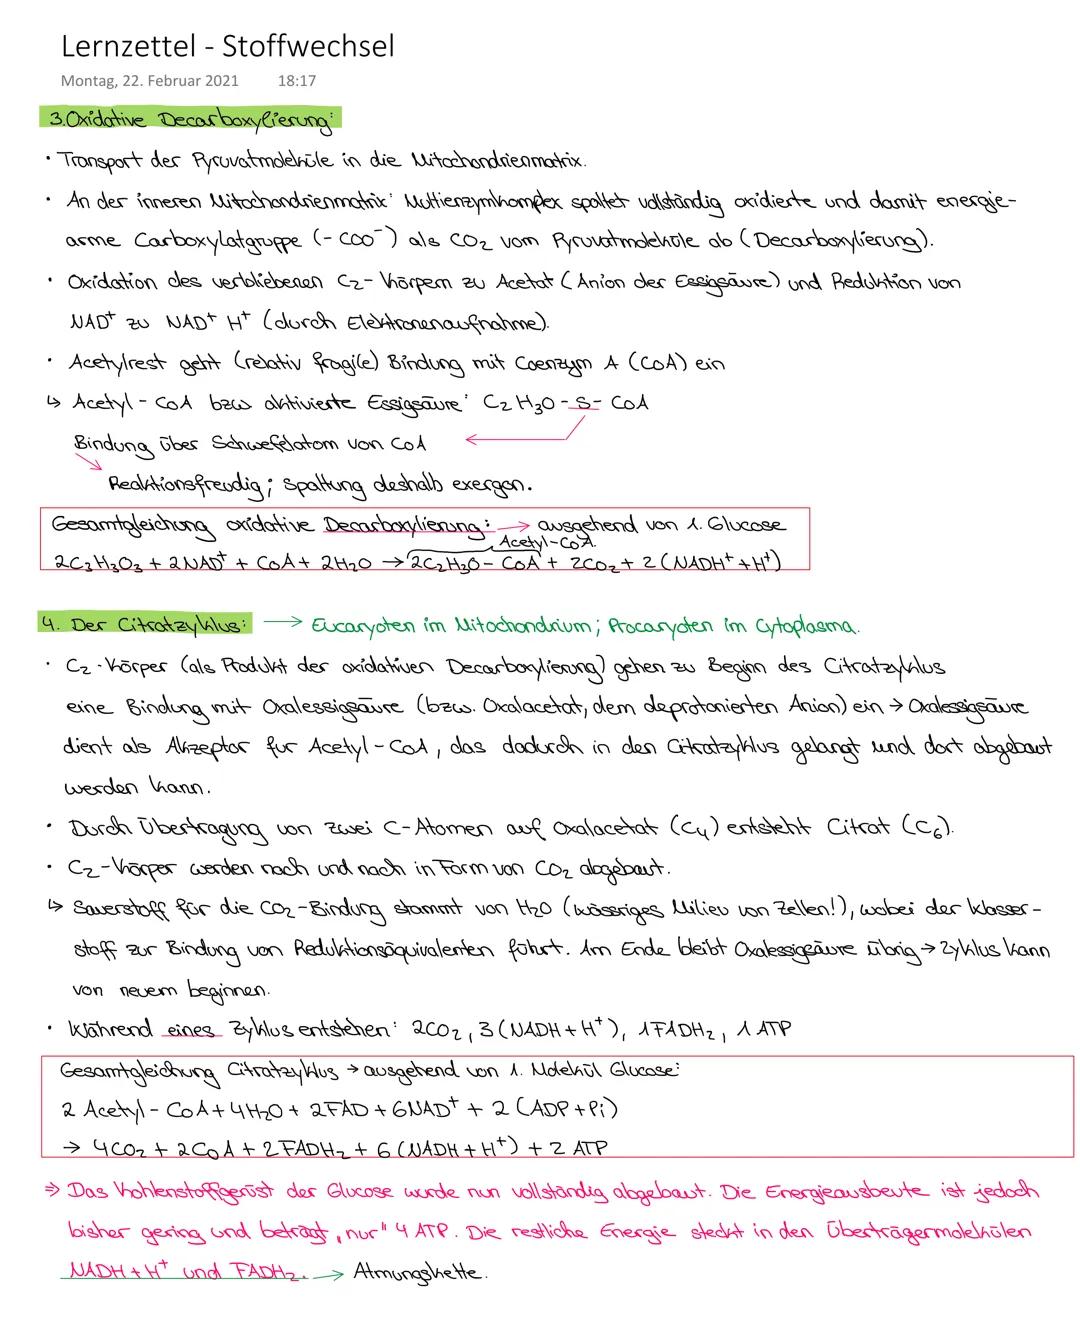 Lernzettel - Stoffwechsel
Montag, 22. Februar 2021 18:17
3. Oxidative Decarboxylierung:
• Transport der Pyruvatmoleküle in die Mitochondrienmatrix.
• An der inneren Mitochondrienmatrix: Multienzymkomplex spaltet vollständig oxidierte und damit energie-
arme Carboxylatgruppe (-COO⁻) als CO₂ vom Pyruvatmoleküle ab (Decarboxylierung).
• Oxidation des verbliebenen C₂-Körpern zu Acetat (Anion der Essigsäure) und Reduktion von
NAD⁺ zu NAD⁺ H⁺ (durch Elektronenaufnahme).
• Acetylrest geht (relativ fragile) Bindung mit Coenzym A (CoA) ein
↳ Acetyl-CoA bzw aktivierte Essigsäure: C₂H₃O-S-CoA
Bindung über Schwefelatom von CoA
Reaktionsfreudig; Spaltung deshalb exergon.
Gesamtgleichung oxidative Decarboxylierung: → ausgehend von 1. Glucose
Acetyl-CoA.
2C₃H₃O₃ + 2NAD⁺ + CoA + 2H₂O → 2C₂H₃O-CoA + 2CO₂ + 2(NADH⁺+H⁺)
4. Der Citratzyklus: → Eucaryoten im Mitochondrium; Procaryoten im Cytoplasma.
• C₂-Körper (als Produkt der oxidativen Decarboxylierung) gehen zu Beginn des Citratzyklus
eine Bindung mit Oxalessigsäure (bzw. Oxalacetat, dem deprotonierten Anion) ein → Oxalessigsäure
dient als Akzeptor für Acetyl-CoA, das dadurch in den Citratzyklus gelangt und dort abgebaut
werden kann.
• Durch Übertragung von zwei C-Atomen auf Oxalacetat (C₄) entsteht Citrat (C₆).
• C₂-Körper werden nach und nach in Form von CO₂ abgebaut.
↳ Sauerstoff für die CO₂-Bindung stammt von H₂O (wässriges Milieu von Zellen!), wobei der Wasser-
stoff zur Bindung von Reduktionsäquivalenten führt. Am Ende bleibt Oxalessigsäure übrig → Zyklus kann
von neuem beginnen.
• Während eines Zyklus entstehen: 2CO₂, 3(NADH+H⁺), 1FADH₂, 1 ATP
Gesamtgleichung Citratzyklus → ausgehend von 1. Molekül Glucose:
2 Acetyl-CoA + 4H₂O + 2FAD + 6NAD⁺ + 2 (ADP+Pi)
→ 4CO₂ + 2CoA + 2FADH₂ + 6(NADH+H⁺) + 2 ATP
⇒ Das Kohlenstoffgerüst der Glucose wurde nun vollständig abgebaut. Die Energieausbeute ist jedoch
bisher gering und beträgt „nur" 4 ATP. Die restliche Energie steckt in den Überträgermolekülen
NADH+H⁺ und FADH₂. → Atmungskette.